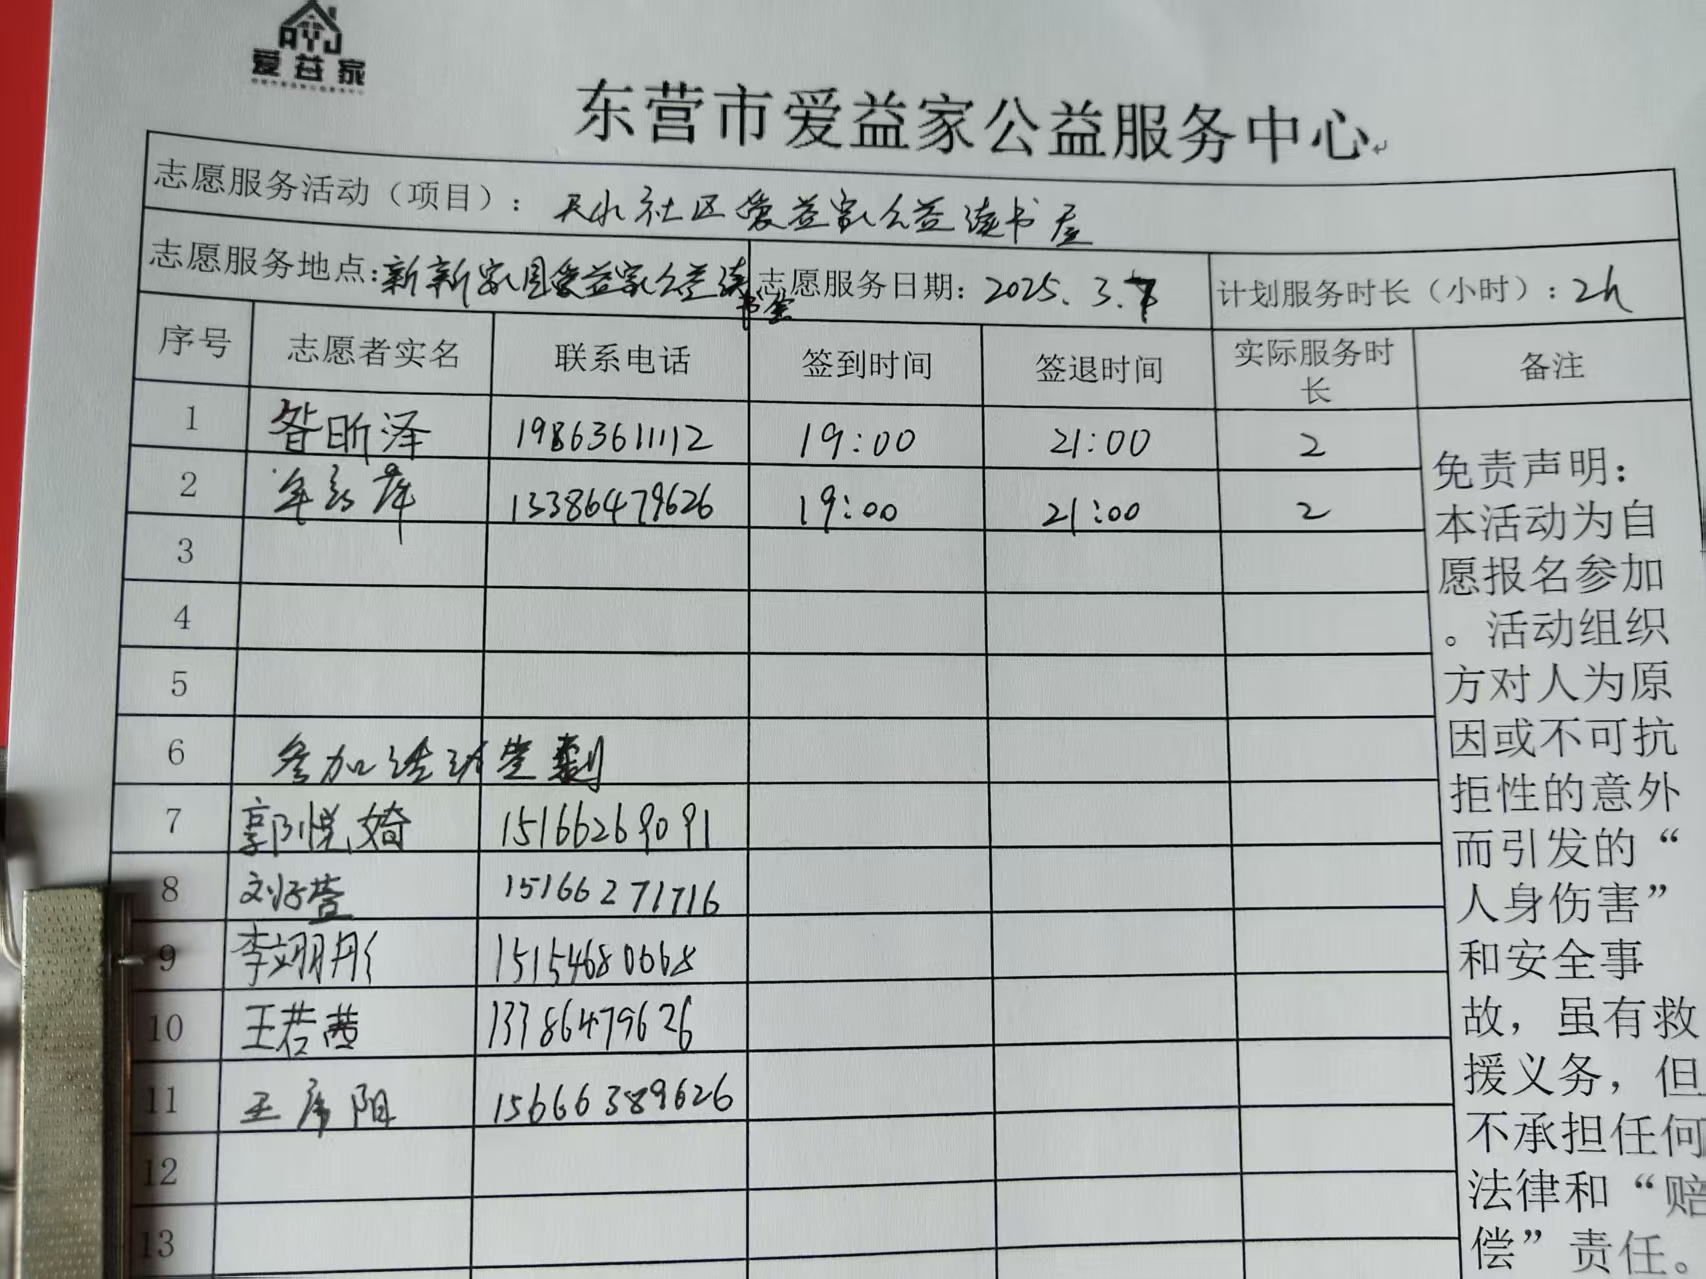 AYJ
爱益家
东营市爱益家公益服务中心
志愿服务活动（项目）：天水社区爱益家公益读书屋
志愿服务地点:新新家园爱益家公益读书屋 志愿服务日期：2025.3.7 计划服务时长（小时）：2h
序号 志愿者实名 联系电话 签到时间 签退时间 实际服务时长 备注
1 昝昕泽 19863611112 19:00 21:00 2
2 13386479626 19:00 21:00 2
3
4
5
6 参加活动签到
7 郭悦婍 15166269091
8 刘子萱 15166271716
9 李翊彤 15154680668
10 王若茜 13386479626
11 王席阳 15666389626
12
13
免责声明：
本活动为自
愿报名参加
。活动组织
方对人为原
因或不可抗
拒性的意外
而引发的“
人身伤害”
和安全事
故，虽有救
援义务，但
不承担任何
法律和“赔
偿”责任。